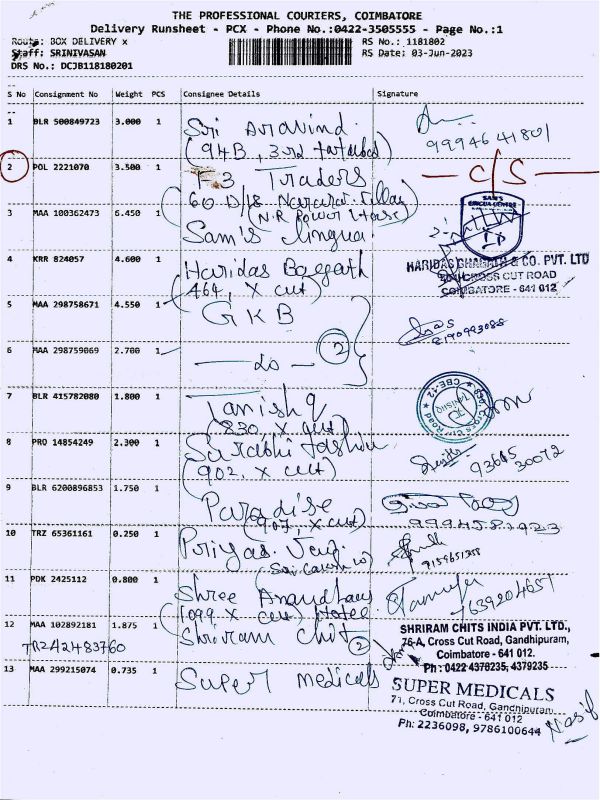 THE PROFESSIONAL COURIERS, COIMBATORE
Delivery Runsheet - PCX - Phone No.:0422-3505555 - Page No.:1
Route: BOX DELIVERY x
RS No.: 1181802
Staff: SRINIVASAN
RS Date: 03-Jun-2023
DRS No.: DCJB118180201
S No Consignment No Weight PCS Consignee Details Signature
1 BLR 500849723 3.000 1 Sri Aravind
(94B, 3rd 
99946 41801
2 POL 2221070 3.500 1 F3 Traders C/S
60 D/18
(N.R Power House)
3 MAA 100362473 6.450 1 Sam's lingua
4 KRR 824057 4.600 1 Haridas
(464, X cut)
HARIDAS BHAGATH & CO. PVT. LTD
CROSS CUT ROAD
COIMBATORE - 641 012
5 MAA 298758671 4.550 1 GKB
8190993088
6 MAA 298759069 2.700 1 — do — 2
7 BLR 415782080 1.800 1 Tanishq
(830, X cut)
8 PRO 14854249 2.300 1 Surabhi fashion
(902, X cut)
93605 30072
9 BLR 6200896853 1.750 1 Paradise
(907, X cut)
10 TRZ 65361161 0.250 1 Priyas
9159651355
11 PDK 2425112 0.800 1 Shree Anandhaas
(1099, X cut) Hotel
7639204657
12 MAA 102892181 1.875 1 Shriram Chit 2
TRZ42483760
SHRIRAM CHITS INDIA PVT. LTD.,
76-A, Cross Cut Road, Gandhipuram,
Coimbatore - 641 012.
Ph : 0422 4378235, 4379235
13 MAA 299215074 0.735 1 Super medicals
SUPER MEDICALS
71, Cross Cut Road, Gandhipuram
Coimbatore - 641 012
Ph: 2236098, 9786100644
Nasif